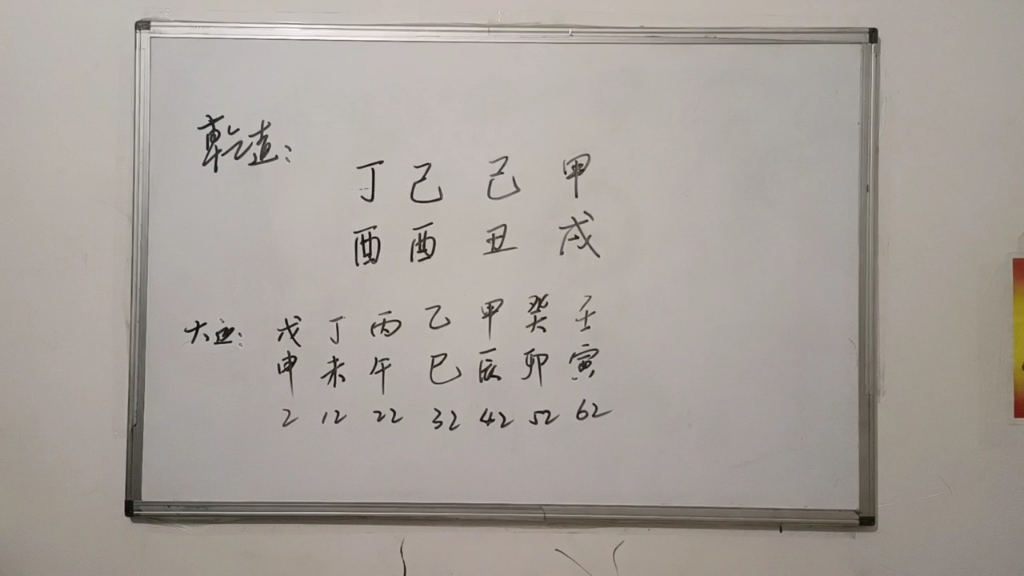 乾造：
丁 己 己 甲
酉 酉 丑 戌
大运：戊 丁 丙 乙 甲 癸 壬
申 未 午 巳 辰 卯 寅
2 12 22 32 42 52 62